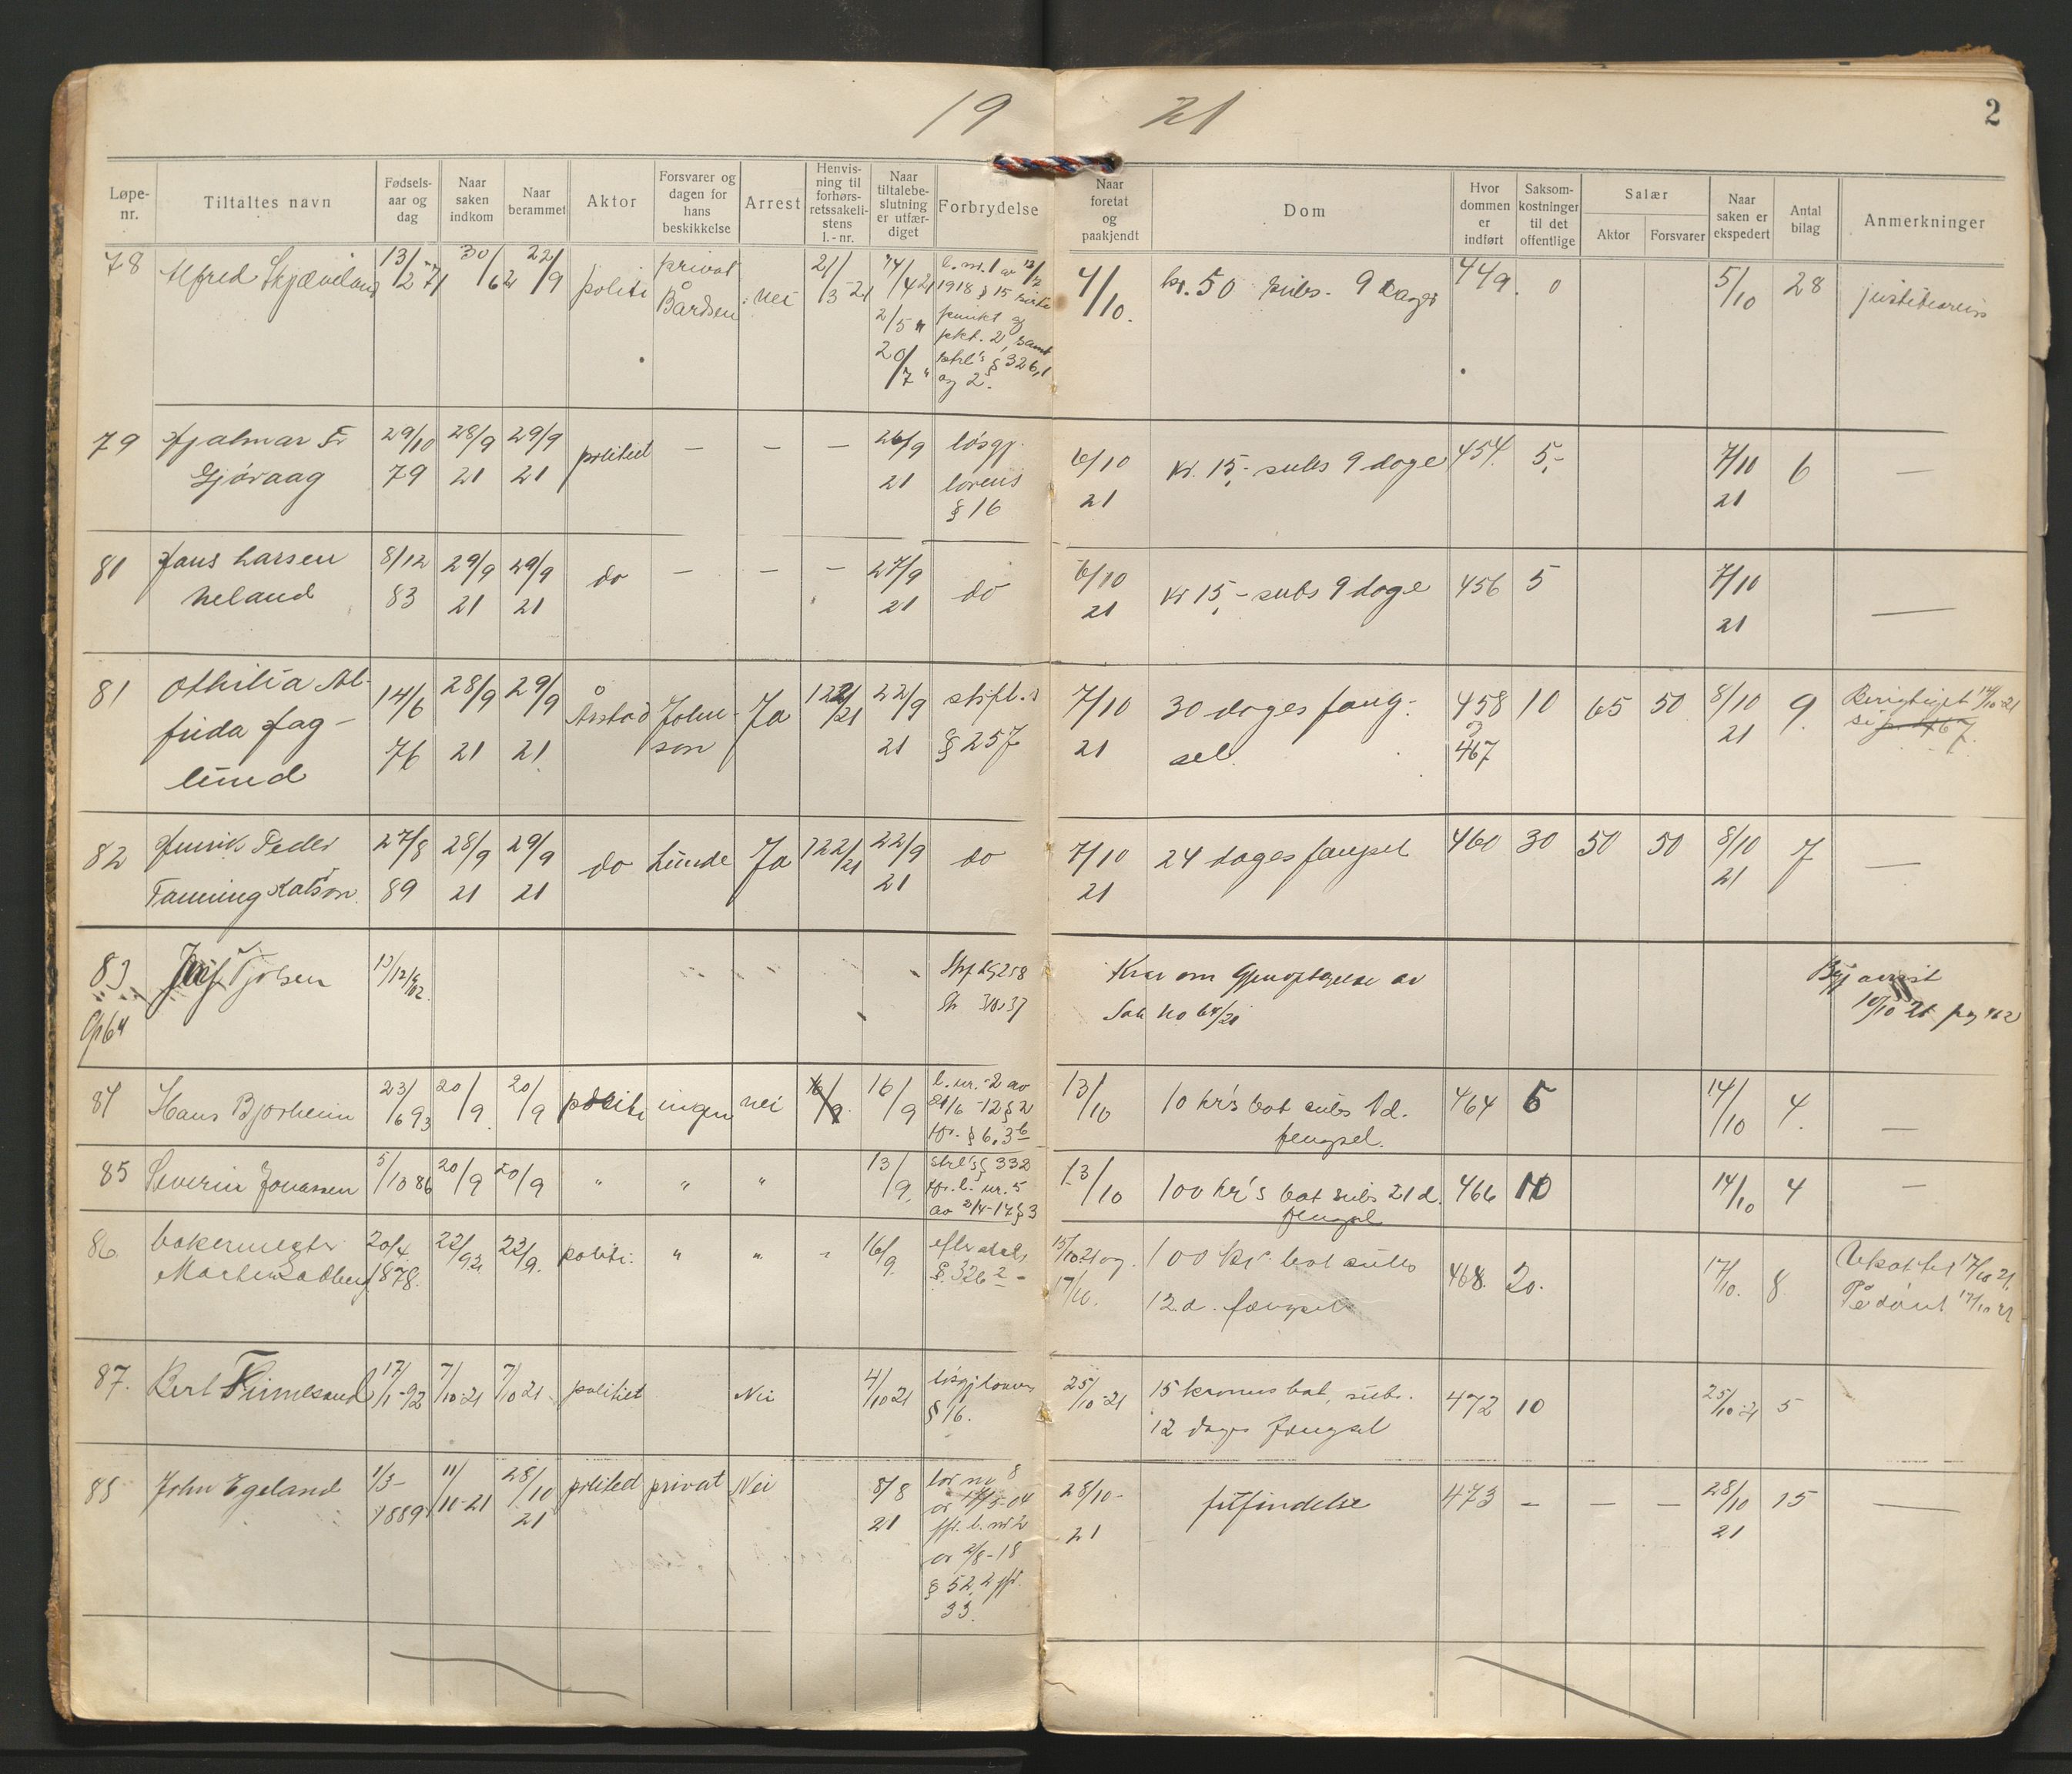 19 21
2
Løpe-nr. Tiltaltes navn Fødsels-aar og dag Naar saken indkom Naar berammet Aktor Forsvarer og dagen for hans beskikkelse Arrest Henvis-ning til forhørs-retssakeli-stens l.-nr. Naar tiltalebe-slutning er utfær-diget Forbrydelse Naar foretat og paakjendt Dom Hvor dommen er indført Saksom-kostninger til det offentlige Salær Aktor Forsvarer Naar saken er ekspedert Antal bilag Anmerkninger
78 Alfred 13/2 71 30/6 21 22/9 politi privat Bårdsen nei 21/3-21 14/4 21 2/5 " 20/7 " l. nr. 1 av 1918 § 15 punkt og pkt. 2, samt strl's § 326,1 og 2. 4/10. kr. 50 subs. 9 dager 449. 0 5/10 28 justitiarius
79 Hjalmar Fr Gjøraag 29/10 79 28/9 21 29/9 21 politiet — — — 26/9 21 løsgj. lovens § 16 6/10 21 Kr. 15,- subs 9 dage 454. 5,- 7/10 21 6 —
81 Hans Larsen Neland 8/12 83 29/9 21 29/9 21 do — — — 27/9 21 do 6/10 21 Kr 15,- subs 9 dage 456 5 7/10 21 —
81 Othilia Al-frida Hag-lund 14/6 76 28/9 21 29/9 21 Årstad John-son Ja 122/21 22/9 21 § 257 7/10 21 30 dages fæng-sel. 458 467 10 65 50 8/10 21 9. Berigtiget 14/10-21
82 Henrik Peder 27/8 89 28/9 21 29/9 21 do Lunde Ja 122/21 22/9 21 do 7/10 21 24 dages fængsel 460 30 50 50 8/10 21 7 —
83 64 Tjølsen Krav om Gjenoptagelse av Sak No 64/21
84 Hans Bjorheim 23/6 93 20/9 20/9 politi ingen nei 16/9 l. nr. 2 av § 2 § 6, 3 13/10 10 kr's bot subs 1 d. fengsel. 464 5 14/10 4. —
85 Severin Jonassen 5/10 86 20/9 20/9 " " " 13/9. strl's § 332 l. nr. 5 av § 3 13/10 100 kr's bot subs 21 d. fengsel 466 10 14/10 4 —
86. bakermester 20/4 1878. 22/9 21 22/9. politi. " " " 16/9. § 326 2 - 15/10 21 og 17/10. 100 kr. bot subs 12 d. fængsel 468. 20. 17/10. 8 17/10 21.
87. Berl Finnesand 17/1-92 7/10-21 7/10 21 politiet Nei 4/10 21 § 16. 25/10-21 15 kroners bot, subs. 12 dages fængsel 472 10 25/10-21 5
88 John Egeland 1/3-1889 11/10-21 28/10 21 politied privat Nei 8/8 21 lov nr 8 av 17/5-04 jfr. l. nr 2 av 2/8-18 § 52,2 jfr. 33. 28/10-21 frifindelse 473 — — — 28/10 21 15 —